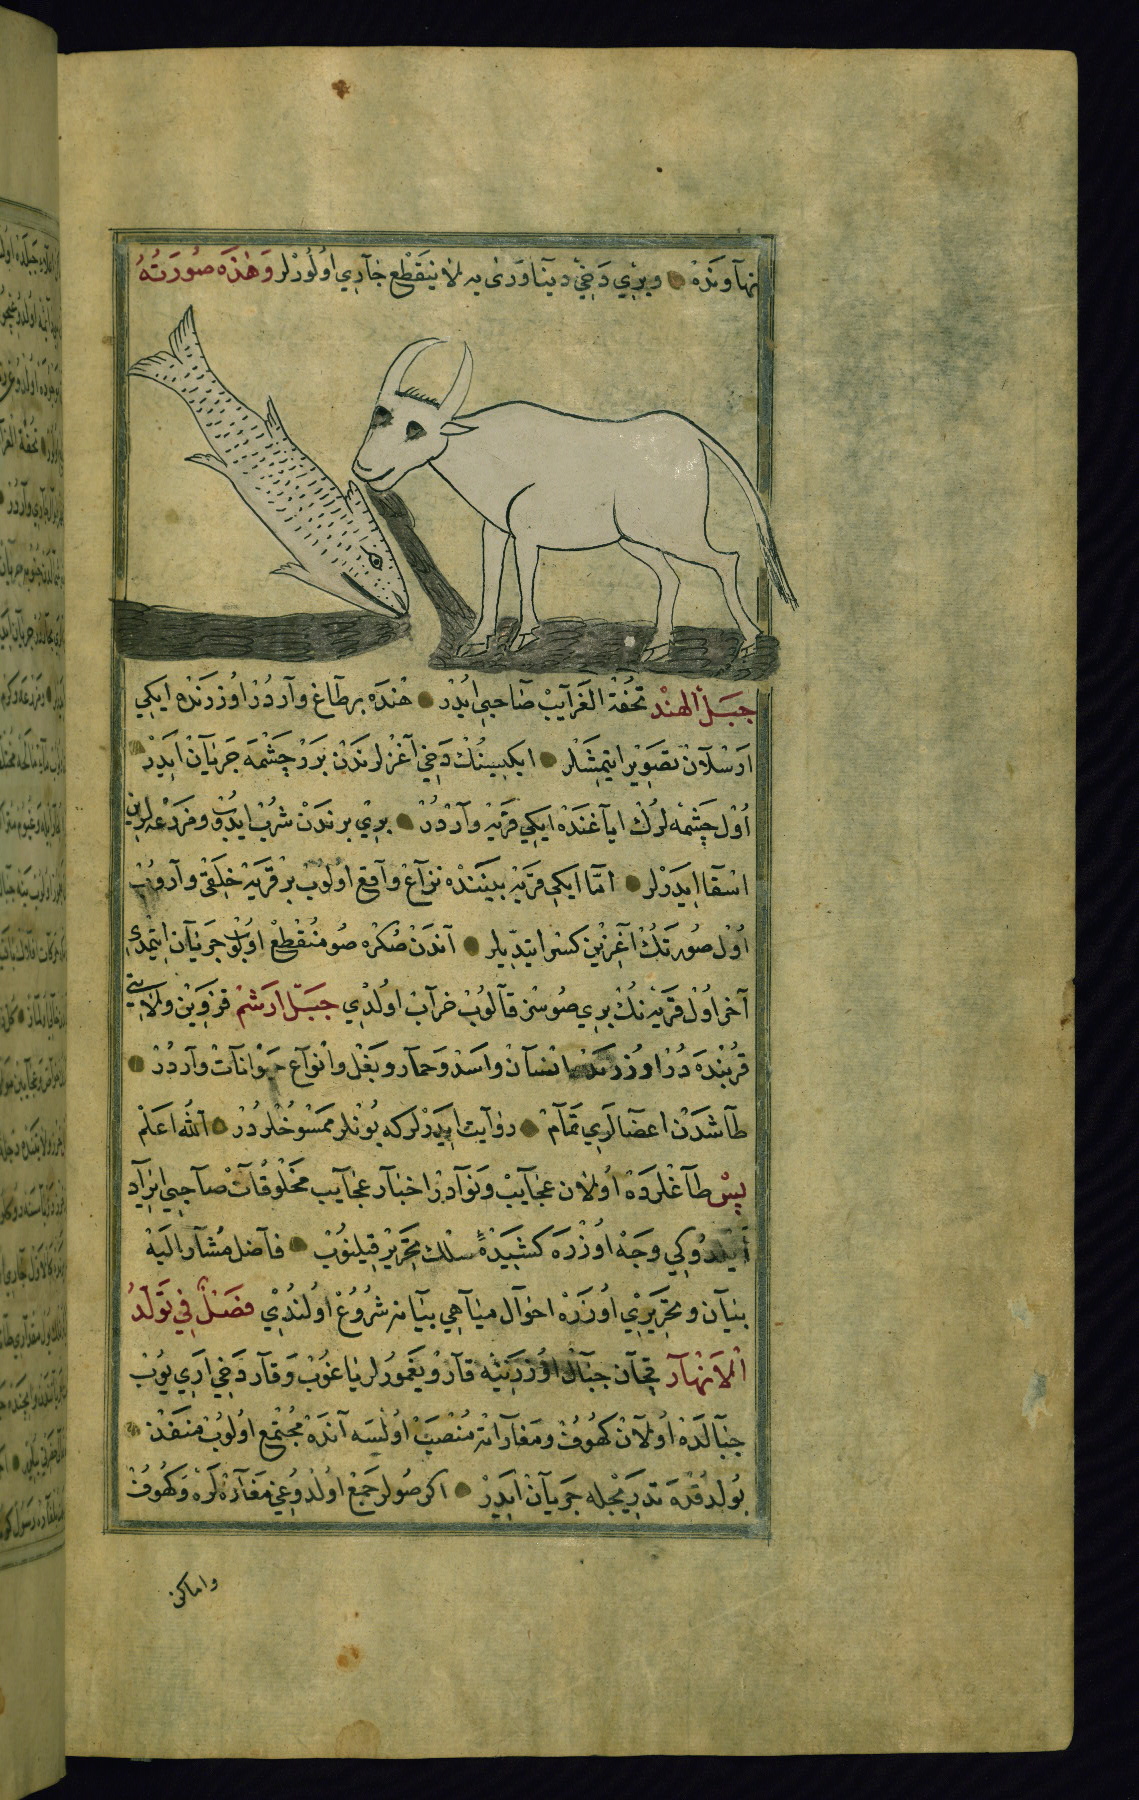 نهاوندە وبري دخي ديناورى يە لا ينقطع جاري اولورلر وهذه صورته
جبل الهند تحفة الغرايب صاحبي ايدر هندە بر طاغ واردر اوزرندە ايكي
ارسلان تصوير ايتمشلر ايكيسينك دخي آغزلرندن برر چشمە جريان ايدر
اول چشمە لرك اياغندە ايكي قريە واردر بري برندن شرب ايدب ومزرعە لرين
اسقا ايدرلر اما ايكي قريە بيننده نزاع واقع اولوب بر قريە خلقى واروب
اول صورتك آغزين كسر ايتديلر آندن صكرە صو منقطع اولوب جريان ايتمدى
آخر اول قريە نك بري صوسز قالوب خراب اولدي جبل ارشم قزوين ولايتي
قربندە در اوزرندە انسان واسد وحمار وبغل وانواع حيوانات واردر
طاشدن اعضالري تمام روايت ايدرلركە بونلر ممسوخلردر الله اعلم
پس طاغلردە اولان عجايب ونوادر اخبار عجايب مخلوقات صاحبي ايراد
ايتدوكي وجە اوزرە كشيدهٔ سلك تحرير قيلنوب فاضل مشار اليە
بيان وتحريري اوزرە احوال مياهي بيانە شروع اولندي فصل في تولد
الانهار قچان جبال اوزرينە قار ويغمورلر ياغوب وقار دخي اريوب
جبالدە اولان كهوف ومغاراتە منصب اولسە آندە مجتمع اولوب منفذ
بولدقدە تدريجلە جريان ايدر اكر صولر جمع اولدوغي مغارە لرە وكهوف
واماكن